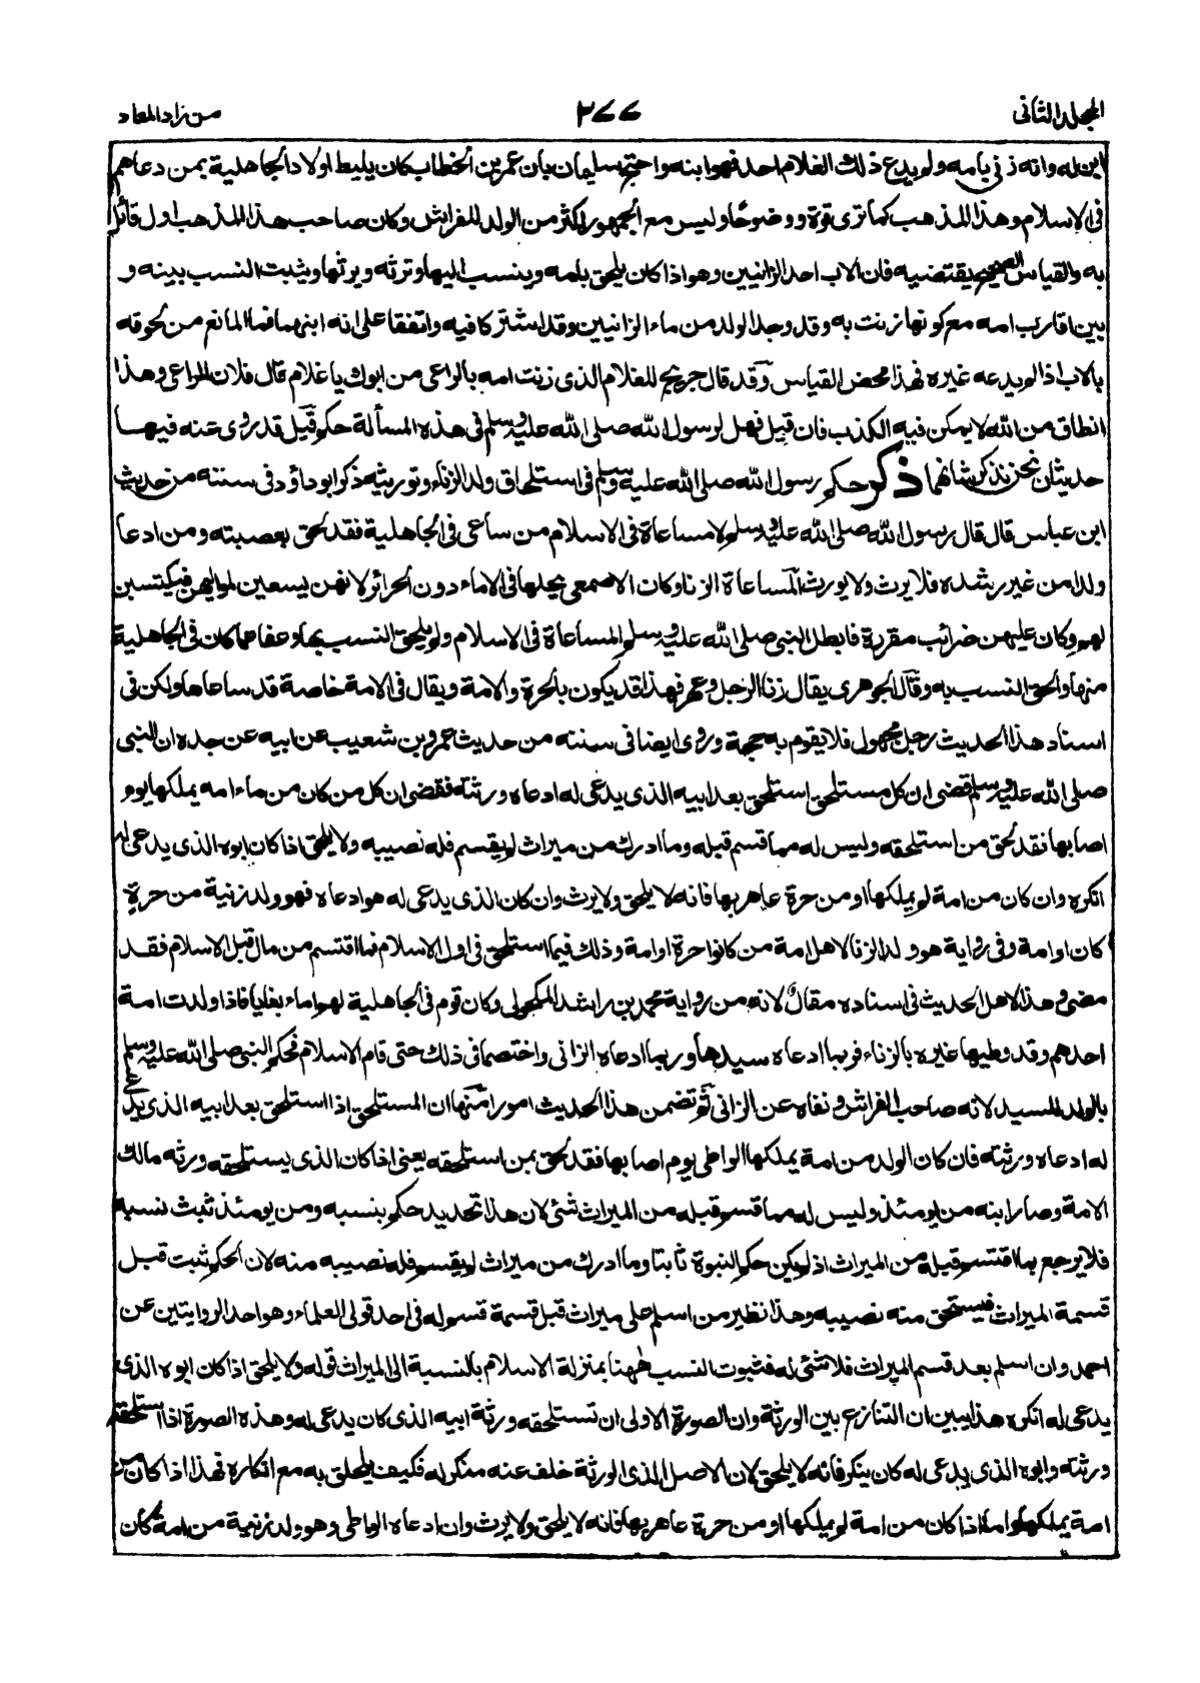 المجلد الثاني ٢٧٧ من زاد المعاد
ابن له وانه زنى بامه ولم يدع ذلك الغلام احد فهو ابنه واحتج سليمان بان عمر بن الخطاب كان يليط اولاد الجاهلية بمن دعاهم
فى الاسلام وهذا المذهب كما ترى قوة ووضوحا وليس مع الجمهور اكثر من الولد للفراش وكان صاحب هذا المذهب اول قائل
به والقياس الصحيح يقتضيه فان الاب احد الزانيين وهو اذا كان يلحق بامه وينسب اليها وترثه ويرثها ويثبت النسب بينه و
بين اقارب امه مع كونها زنت به وقد وجد الولد من ماء الزانيين وقد اشتركا فيه واتفقا على انه ابنهما فما المانع من لحوقه
بالاب اذا لم يدعه غيره فهذا محض القياس وقد قال جريج للغلام الذى زنت امه بالراعى من ابوك يا غلام قال فلان الراعى وهذا
انطاق من الله لا يمكن فيه الكذب فان قيل فهل لرسول الله صلى الله عليه وسلم فى هذه المسألة حكم قيل قد روى عنه فيها
حديثان نحن نذكر شانهما ذكر حكم رسول الله صلى الله عليه وسلم فى استلحاق ولد الزناء وتوريثه ذكر ابو داؤد فى سننه من حديث
ابن عباس قال قال رسول الله صلى الله عليه وسلم لا مساعاة فى الاسلام من ساعى فى الجاهلية فقد لحق بعصبته ومن ادعا
ولدا من غير رشده فلا يرث ولا يورث المساعاة الزنا وكان الاصمعى يجعلها فى الاماء دون الحرائر لانهن يسعين لمواليهن فيكتسبن
لهم وكان عليهن ضرائب مقررة فابطل النبى صلى الله عليه وسلم المساعاة فى الاسلام ولم يلحق النسب بها وعفا عما كان فى الجاهلية
منها والحق النسب به وقال الجوهرى يقال زنا الرجل وعهر فهذا قد يكون بالحرة والامة ويقال فى الامة خاصة قد ساعاها ولكن فى
اسناد هذا الحديث رجل مجهول فلا يقوم به حجة وروى ايضا فى سننه من حديث عمرو بن شعيب عن ابيه عن جده ان النبى
صلى الله عليه وسلم قضى ان كل مستلحق استلحق بعد ابيه الذى يدعى له ادعاه ورثته فقضى ان كل من كان من ماء امه يملكها يوم
اصابها فقد لحق من استلحقه وليس له مما قسم قبله وما ادرك من ميراث لم يقسم فله نصيبه ولا يلحق اذا كان ابوه الذى يدعى له
انكره وان كان من امة لم يملكها او من حرة عاهر بها فانه لا يلحق ولا يرث وان كان الذى يدعى له هو ادعاه فهو ولد زنية من حرة
كان او امة وفى رواية هو ولد الزنا لاهل امة من كانوا حرة او امة وذلك فيما استلحق فى اول الاسلام فما اقتسم من مال قبل الاسلام فقد
مضى وهذا لاهل الحديث فى اسناده مقال لانه من رواية محمد بن راشد المكحولى وكان قوم فى الجاهلية لهم اماء بغايا فاذا ولدت امة
احدهم وقد وطيها غيره بالزناء فربما ادعاه سيدها وربما ادعاه الزانى واختصما فى ذلك حتى قام الاسلام فحكم النبى صلى الله عليه وسلم
بالولد للسيد لانه صاحب الفراش ونفاه عن الزانى ثم تضمن هذا الحديث امورا منها ان المستلحق اذا استلحق بعد ابيه الذى يدعى
له ادعاه ورثته فان كان الولد من امة يملكها الواطى يوم اصابها فقد لحق بمن استلحقه يعنى اذا كان الذى يستلحقه ورثه مالك
الامة وصار ابنه من يومئذ وليس له مما قسم قبله من الميراث شئ لان هذا تجديد حكم بنسبه ومن يومئذ تثبت نسبه
فلا يرجع بما اقتسم قبله من الميراث اذ لم يكن حكم النبوة ثابتا وما ادرك من ميراث لم يقسم فله نصيبه منه لان الحكم ثبت قبل
قسمة الميراث فيستحق منه نصيبه وهذا نظير من اسلم على ميراث قبل قسمة قسم له فى احد قولى العلماء وهو احد الروايتين عن
احمد وان اسلم بعد قسم الميراث فلا شئ له فثبوت النسب ههنا بمنزلة الاسلام بالنسبة الى الميراث قوله ولا يلحق اذا كان ابوه الذى
يدعى له انكره هذا يبين ان التنازع بين الورثة وان الصورة الاولى ان تستلحقه ورثة ابيه الذى كان يدعى له وهذه الصورة اذا استلحقه
ورثته وابوه الذى يدعى له كان ينكر فانه لا يلحق لان الاصل الذى الورثة خلف عنه منكر له فكيف يلحق به مع انكاره فهذا اذا كان من
امة يملكها اما اذا كان من امة لم يملكها او من حرة عاهر بها فانه لا يلحق ولا يرث وان ادعاه الواطى وهو ولد زنية من امة كان